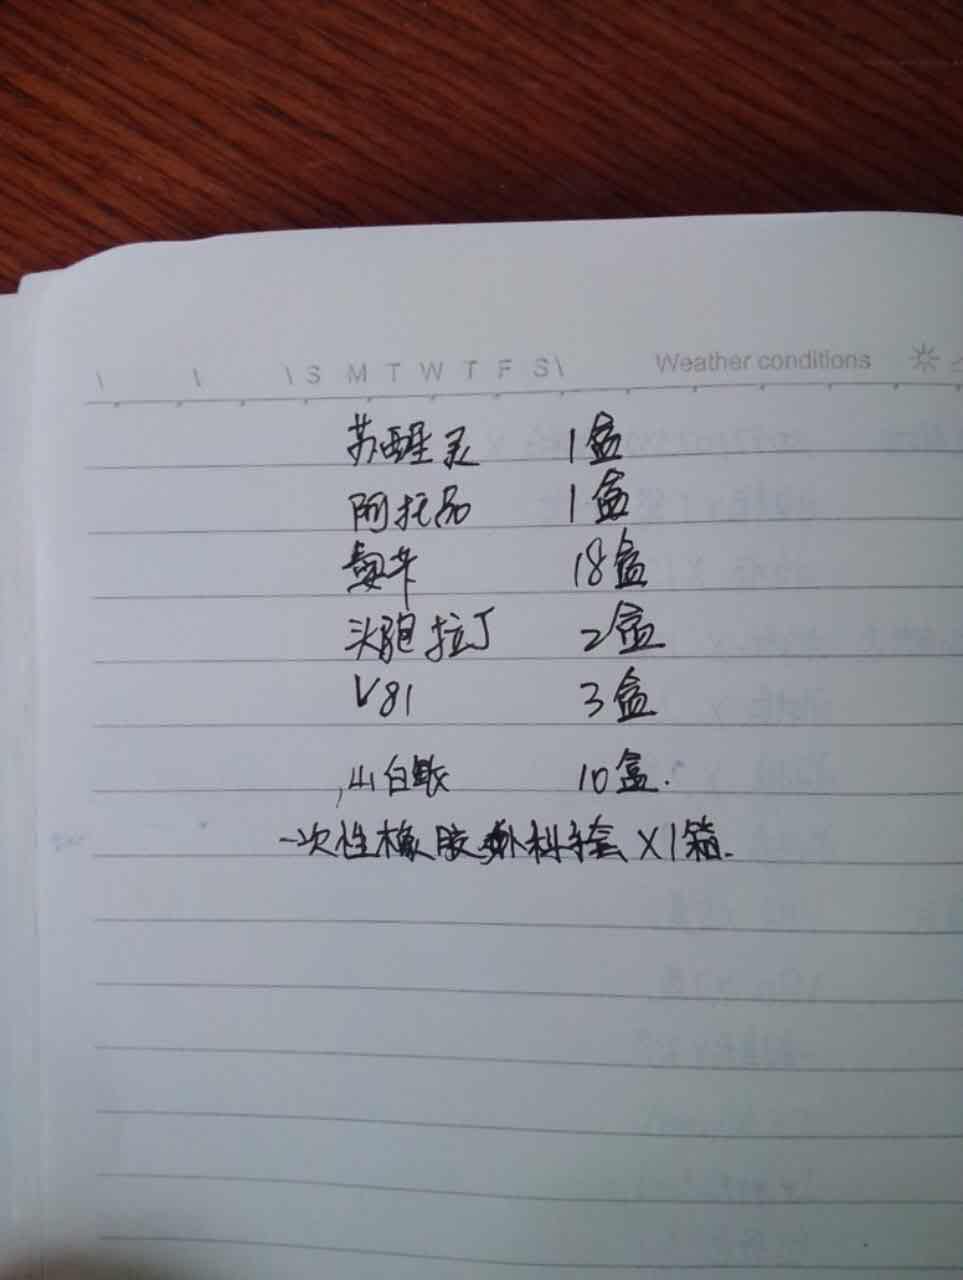 \ \ \ S M T W T F S \ Weather conditions
苏醒灵 1盒
阿托品 1盒
氨苄 18盒
头孢拉丁 2盒
VB1 3盒
山白 10盒.
一次性橡胶外科手套 X1箱.